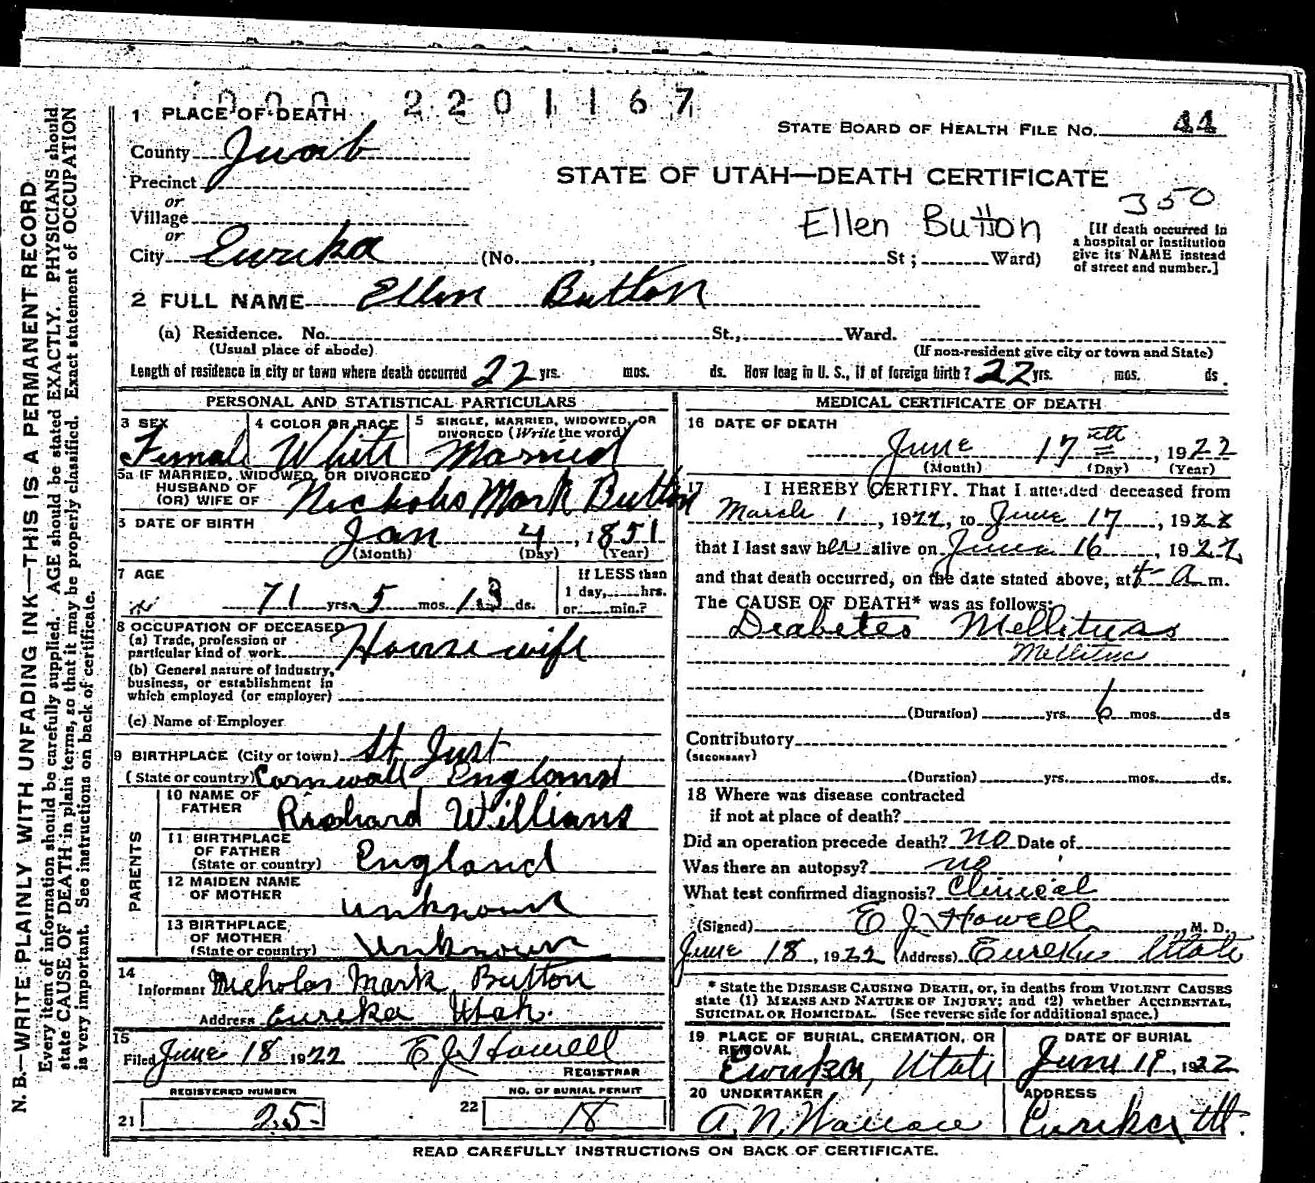 000 2201167
1 PLACE OF DEATH
STATE BOARD OF HEALTH FILE NO. 44
County Juab
STATE OF UTAH—DEATH CERTIFICATE
Precinct
or
Village
350
Ellen Button
[If death occurred in
a hospital or institution
give its NAME instead
of street and number.]
or
City Eureka (No. , St ; Ward)
2 FULL NAME Ellen Button
(a) Residence. No. St., Ward.
(Usual place of abode) (If non-resident give city or town and State)
Length of residence in city or town where death occurred 22 yrs. mos. ds. How long in U. S., if of foreign birth? 22 yrs. mos. ds.
PERSONAL AND STATISTICAL PARTICULARS
3 SEX
Female
4 COLOR OR RACE
White
5 SINGLE, MARRIED, WIDOWED, OR
DIVORCED (Write the word)
Married
5a IF MARRIED, WIDOWED, OR DIVORCED
HUSBAND OF
(OR) WIFE OF Nicholas Mark Button
DATE OF BIRTH
Jan 4, 1851
(Month) (Day) (Year)
7 AGE
71 yrs. 5 mos. 13 ds.
If LESS than
1 day, hrs.
or min.?
8 OCCUPATION OF DECEASED
(a) Trade, profession or
particular kind of work Housewife
(b) General nature of industry,
business, or establishment in
which employed (or employer)
(c) Name of Employer
9 BIRTHPLACE (City or town) St Just
(State or country) Cornwall England
PARENTS
10 NAME OF
FATHER Richard Williams
11 BIRTHPLACE
OF FATHER
(State or country) England
12 MAIDEN NAME
OF MOTHER unknown
13 BIRTHPLACE
OF MOTHER
(State or country) Unknown
14
Informant Nicholas Mark Button
Address Eureka Utah.
15
Filed June 18 1922 E J Howell
REGISTRAR
REGISTERED NUMBER
21 25
NO. OF BURIAL PERMIT
22 18
MEDICAL CERTIFICATE OF DEATH
16 DATE OF DEATH
June 17th, 1922
(Month) (Day) (Year)
17 I HEREBY CERTIFY. That I attended deceased from
March 1, 1922, to June 17, 1922
that I last saw her alive on June 16, 1922
and that death occurred, on the date stated above, at 4 a m.
The CAUSE OF DEATH* was as follows:
Diabetes Mellituss
Mellitus
(Duration) yrs. 6 mos. ds
Contributory
(SECONDARY)
(Duration) yrs. mos. ds.
18 Where was disease contracted
if not at place of death?
Did an operation precede death? no Date of
Was there an autopsy? no
What test confirmed diagnosis? Clinical
(Signed) E J Howell M. D.
June 18, 1922 (Address) Eureka Utah
* State the DISEASE CAUSING DEATH, or, in deaths from VIOLENT CAUSES
state (1) MEANS AND NATURE OF INJURY; and (2) whether ACCIDENTAL,
SUICIDAL OR HOMICIDAL. (See reverse side for additional space.)
19 PLACE OF BURIAL, CREMATION, OR
REMOVAL
Eureka, Utah
DATE OF BURIAL
June 19, 1922
20 UNDERTAKER
A. N. Wallace
ADDRESS
Eureka, Ut.
READ CAREFULLY INSTRUCTIONS ON BACK OF CERTIFICATE.
N. B.—WRITE PLAINLY WITH UNFADING INK—THIS IS A PERMANENT RECORD
Every item of information should be carefully supplied. AGE should be stated EXACTLY. PHYSICIANS should
state CAUSE OF DEATH in plain terms, so that it may be properly classified. Exact statement of OCCUPATION
is very important. See instructions on back of certificate.